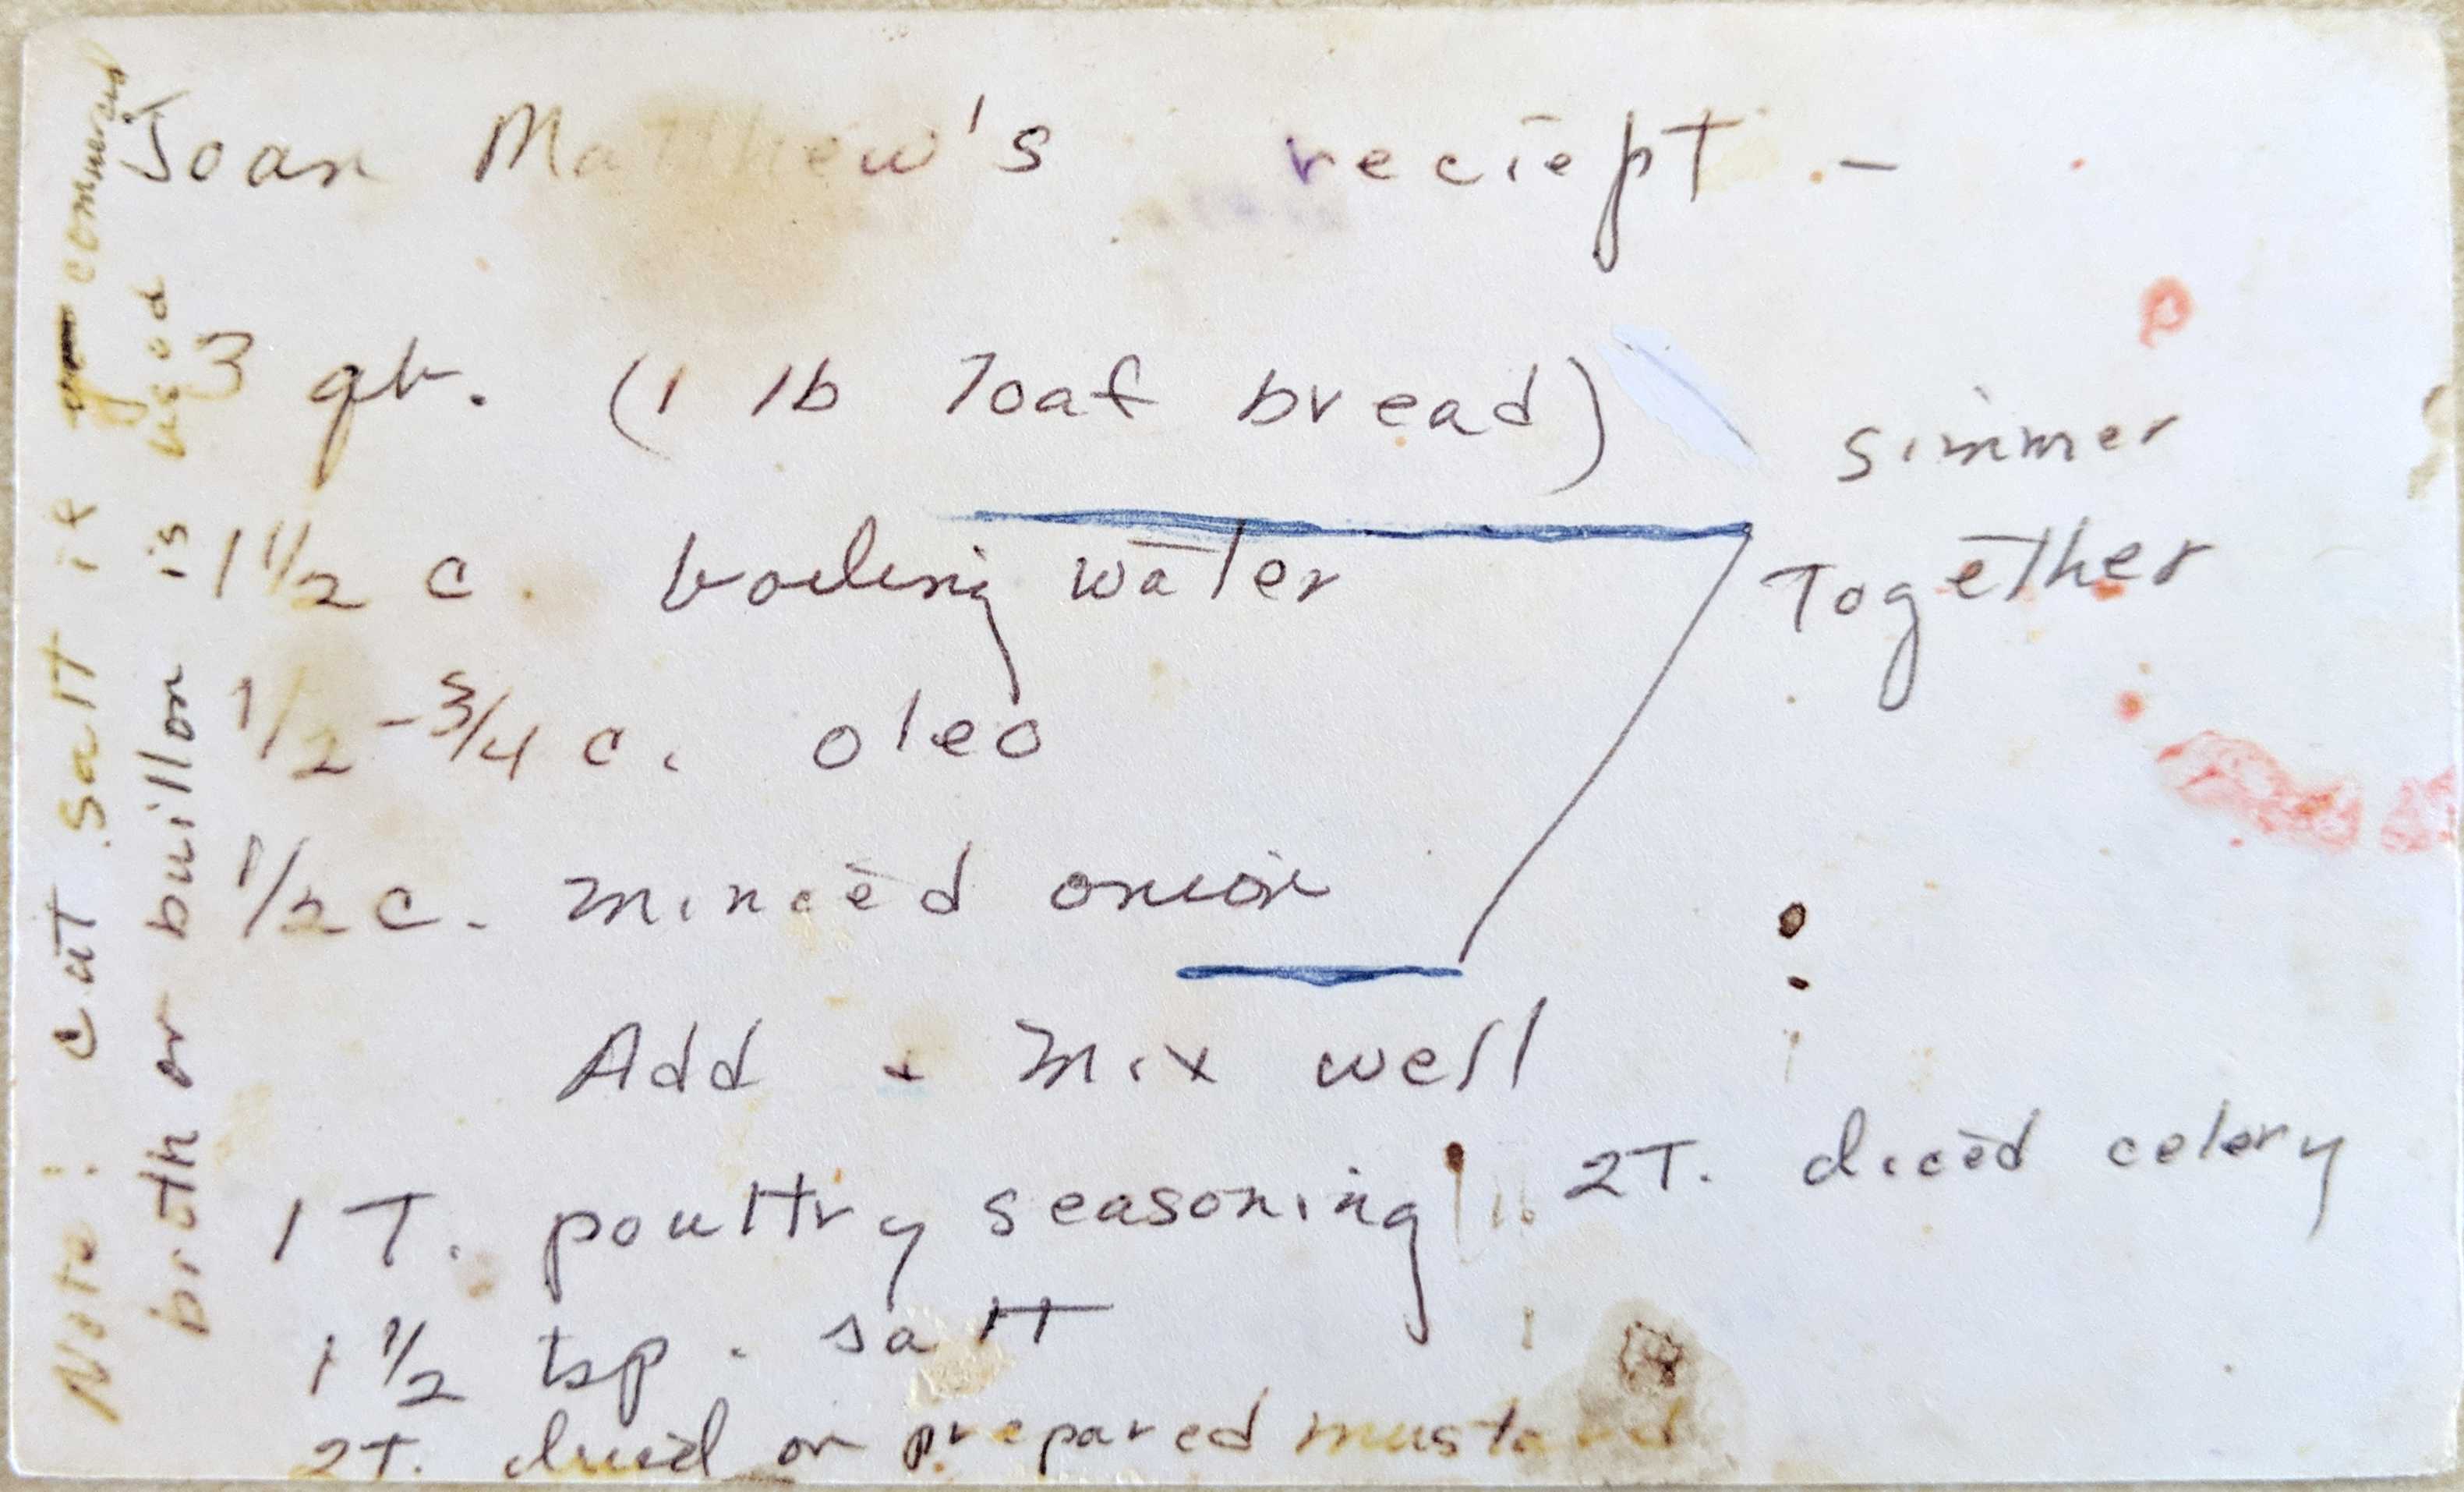 Joan Matthew's reciept -
3 qt. (1 lb loaf bread)
1 1/2 c. boiling water
1/2 - 3/4 c. oleo
1/2 c. minced onion
simmer
Together
Add + mix well
1 T. poultry seasoning
2T. diced celery
1 1/2 tsp. salt
2T. dried or prepared mustard
Note: cut salt if commercial
broth or buillon is used